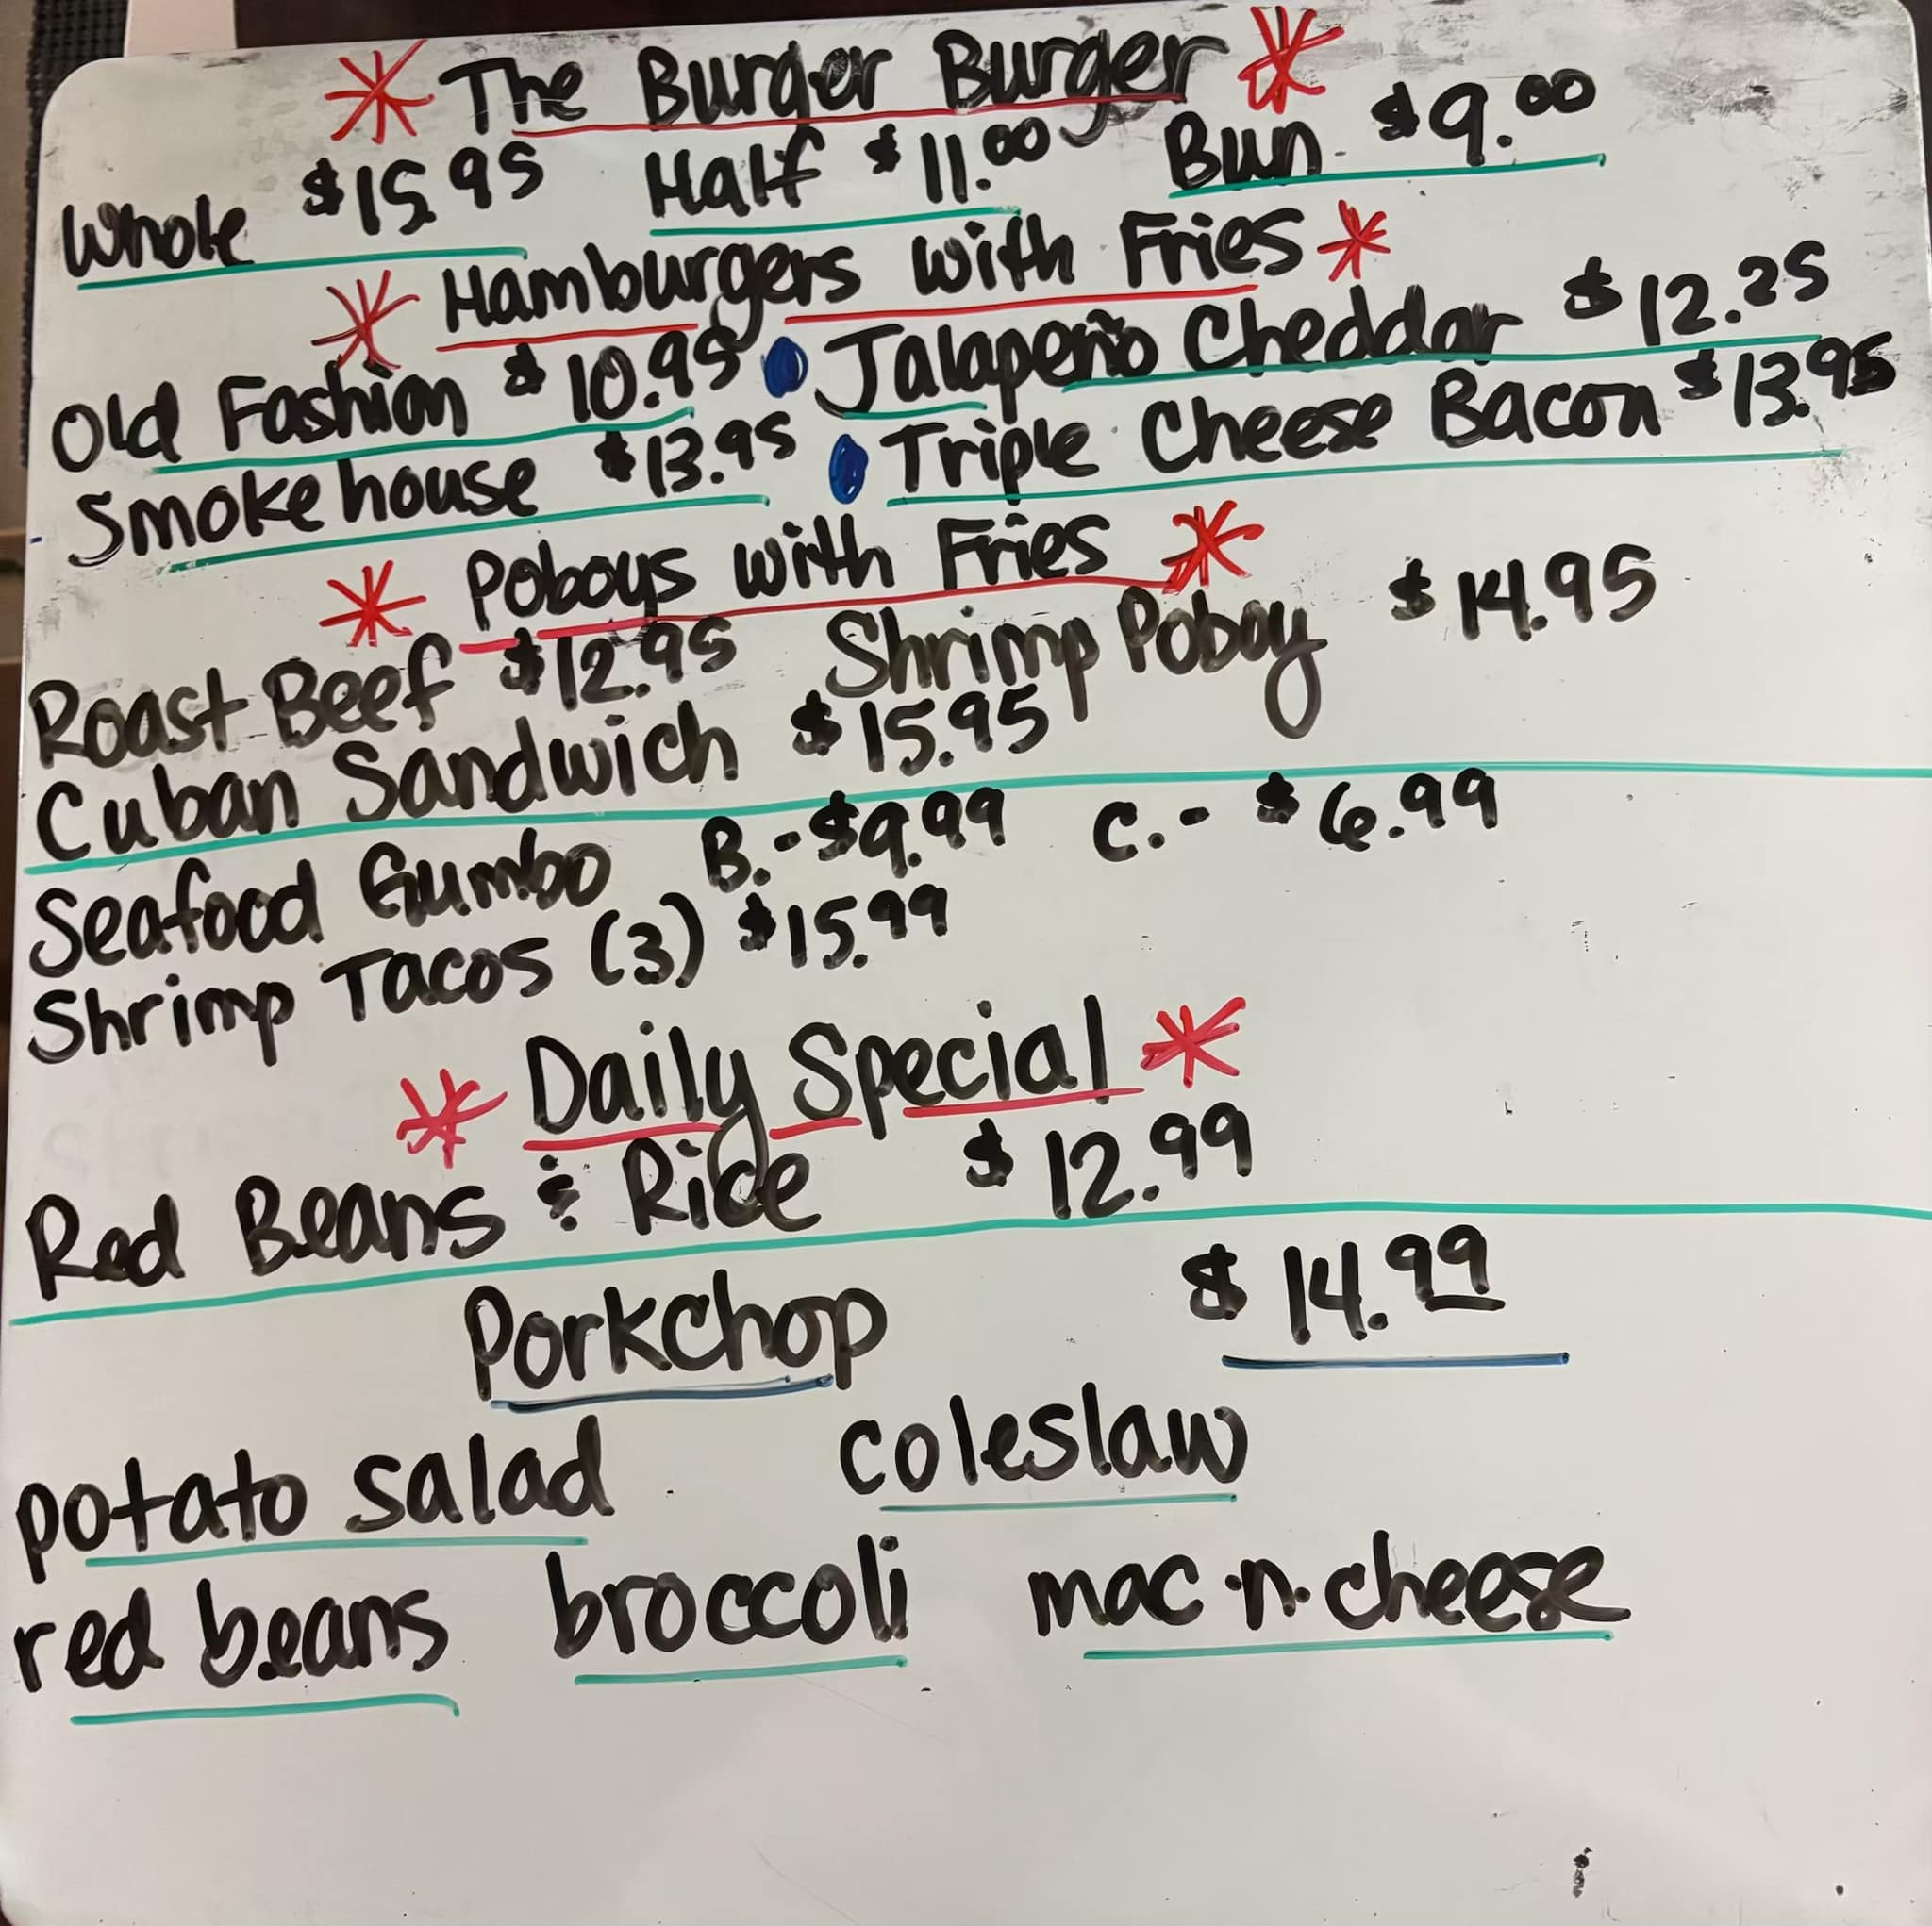 The Burger Burger
Whole $15.95 Half $11.00 Bun $9.00
Hamburgers with Fries
Old Fashion $10.95 Jalapeño Cheddar $12.25
Smokehouse $13.95 Triple Cheese Bacon $13.95
Poboys with Fries
Roast Beef $12.95 Shrimp Poboy $14.95
Cuban Sandwich $15.95
Seafood Gumbo B.-$9.99 C.-$6.99
Shrimp Tacos (3) $15.99
Daily Special
Red Beans & Rice $12.99
Porkchop $14.99
potato salad coleslaw
red beans broccoli mac·n·cheese